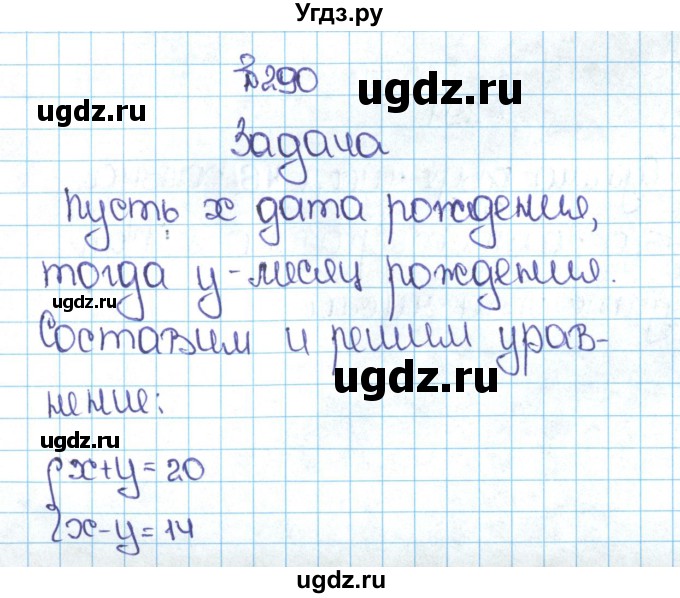 Угдз.ру
№290
ugdz.ru
ugdz.ru
Задача
Пусть x дата рождения,
тогда y-месяц рождения.
ugdz.ru
Составим и решим урав-
ugdz.ru
нение:
ugdz.ru
{x+y=20
{x-y=14
ugdz.ru
ugdz.ru